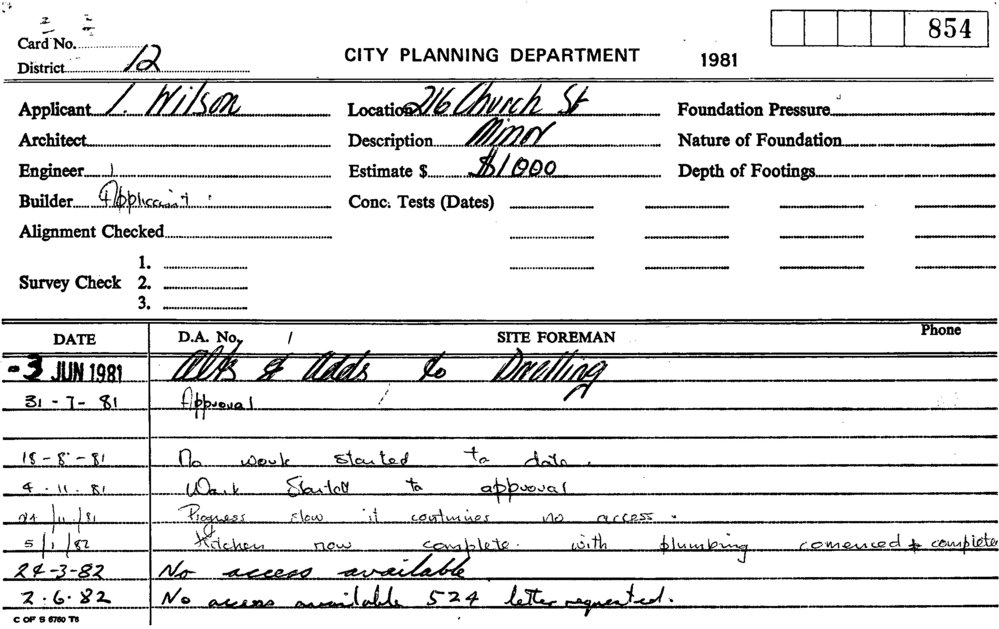 854
Card No.
CITY PLANNING DEPARTMENT 1981
District 12
Applicant I. Wilson Location 216 Church St Foundation Pressure
Architect Description Minor Nature of Foundation
Engineer Estimate $ $1000 Depth of Footings
Builder Applicant Conc. Tests (Dates)
Alignment Checked
1.
Survey Check 2.
3.
DATE D.A. No. SITE FOREMAN Phone
-3 JUN 1981 Alts & Adds to Dwelling
31-7-81 Approval
18-8-81 No work started to date.
4.11.81 Work Started to approval
24/11/81 Progress slow it continues no access.
5/1/82 Kitchen now complete. with plumbing comenced & complete
24-3-82 No access available
2.6.82 No access available 524 letter requested.
C OF S 6760 T8